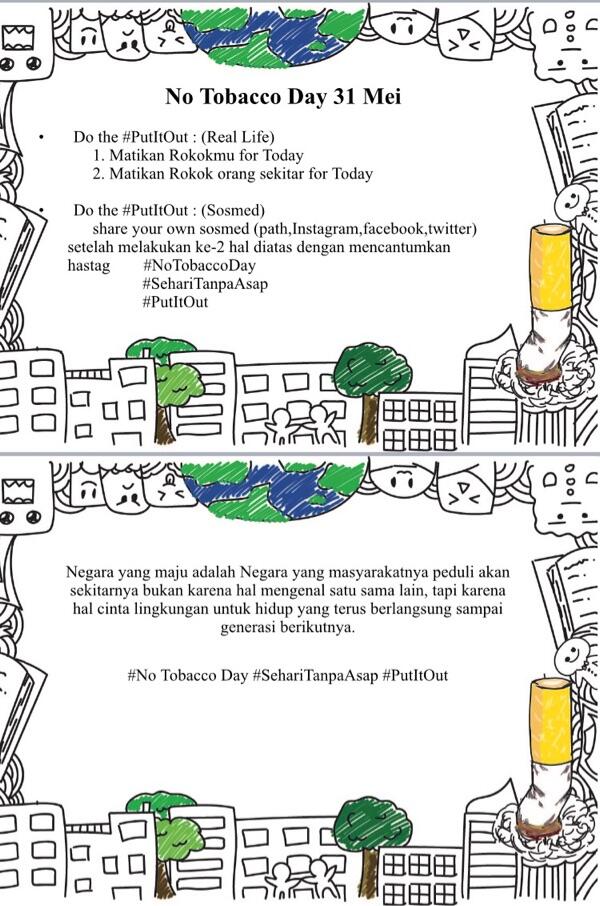 No Tobacco Day 31 Mei
• Do the #PutItOut : (Real Life)
1. Matikan Rokokmu for Today
2. Matikan Rokok orang sekitar for Today
• Do the #PutItOut : (Sosmed)
share your own sosmed (path,Instagram,facebook,twitter)
setelah melakukan ke-2 hal diatas dengan mencantumkan
hastag #NoTobaccoDay
#SehariTanpaAsap
#PutItOut
Negara yang maju adalah Negara yang masyarakatnya peduli akan
sekitarnya bukan karena hal mengenal satu sama lain, tapi karena
hal cinta lingkungan untuk hidup yang terus berlangsung sampai
generasi berikutnya.
#No Tobacco Day #SehariTanpaAsap #PutItOut